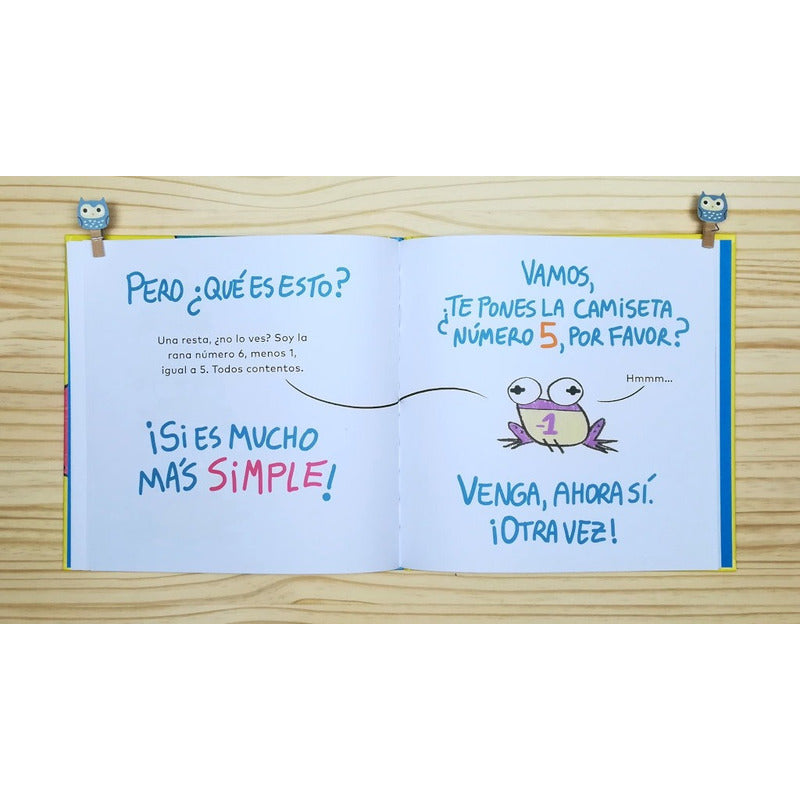 PERO ¿QUÉ ES ESTO?
Una resta, ¿no lo ves? Soy la
rana número 6, menos 1,
igual a 5. Todos contentos.
¡SI ES MUCHO
MÁS SIMPLE!
VAMOS,
¿TE PONES LA CAMISETA
NÚMERO 5, POR FAVOR?
Hmmm...
-1
VENGA, AHORA SÍ.
¡OTRA VEZ!